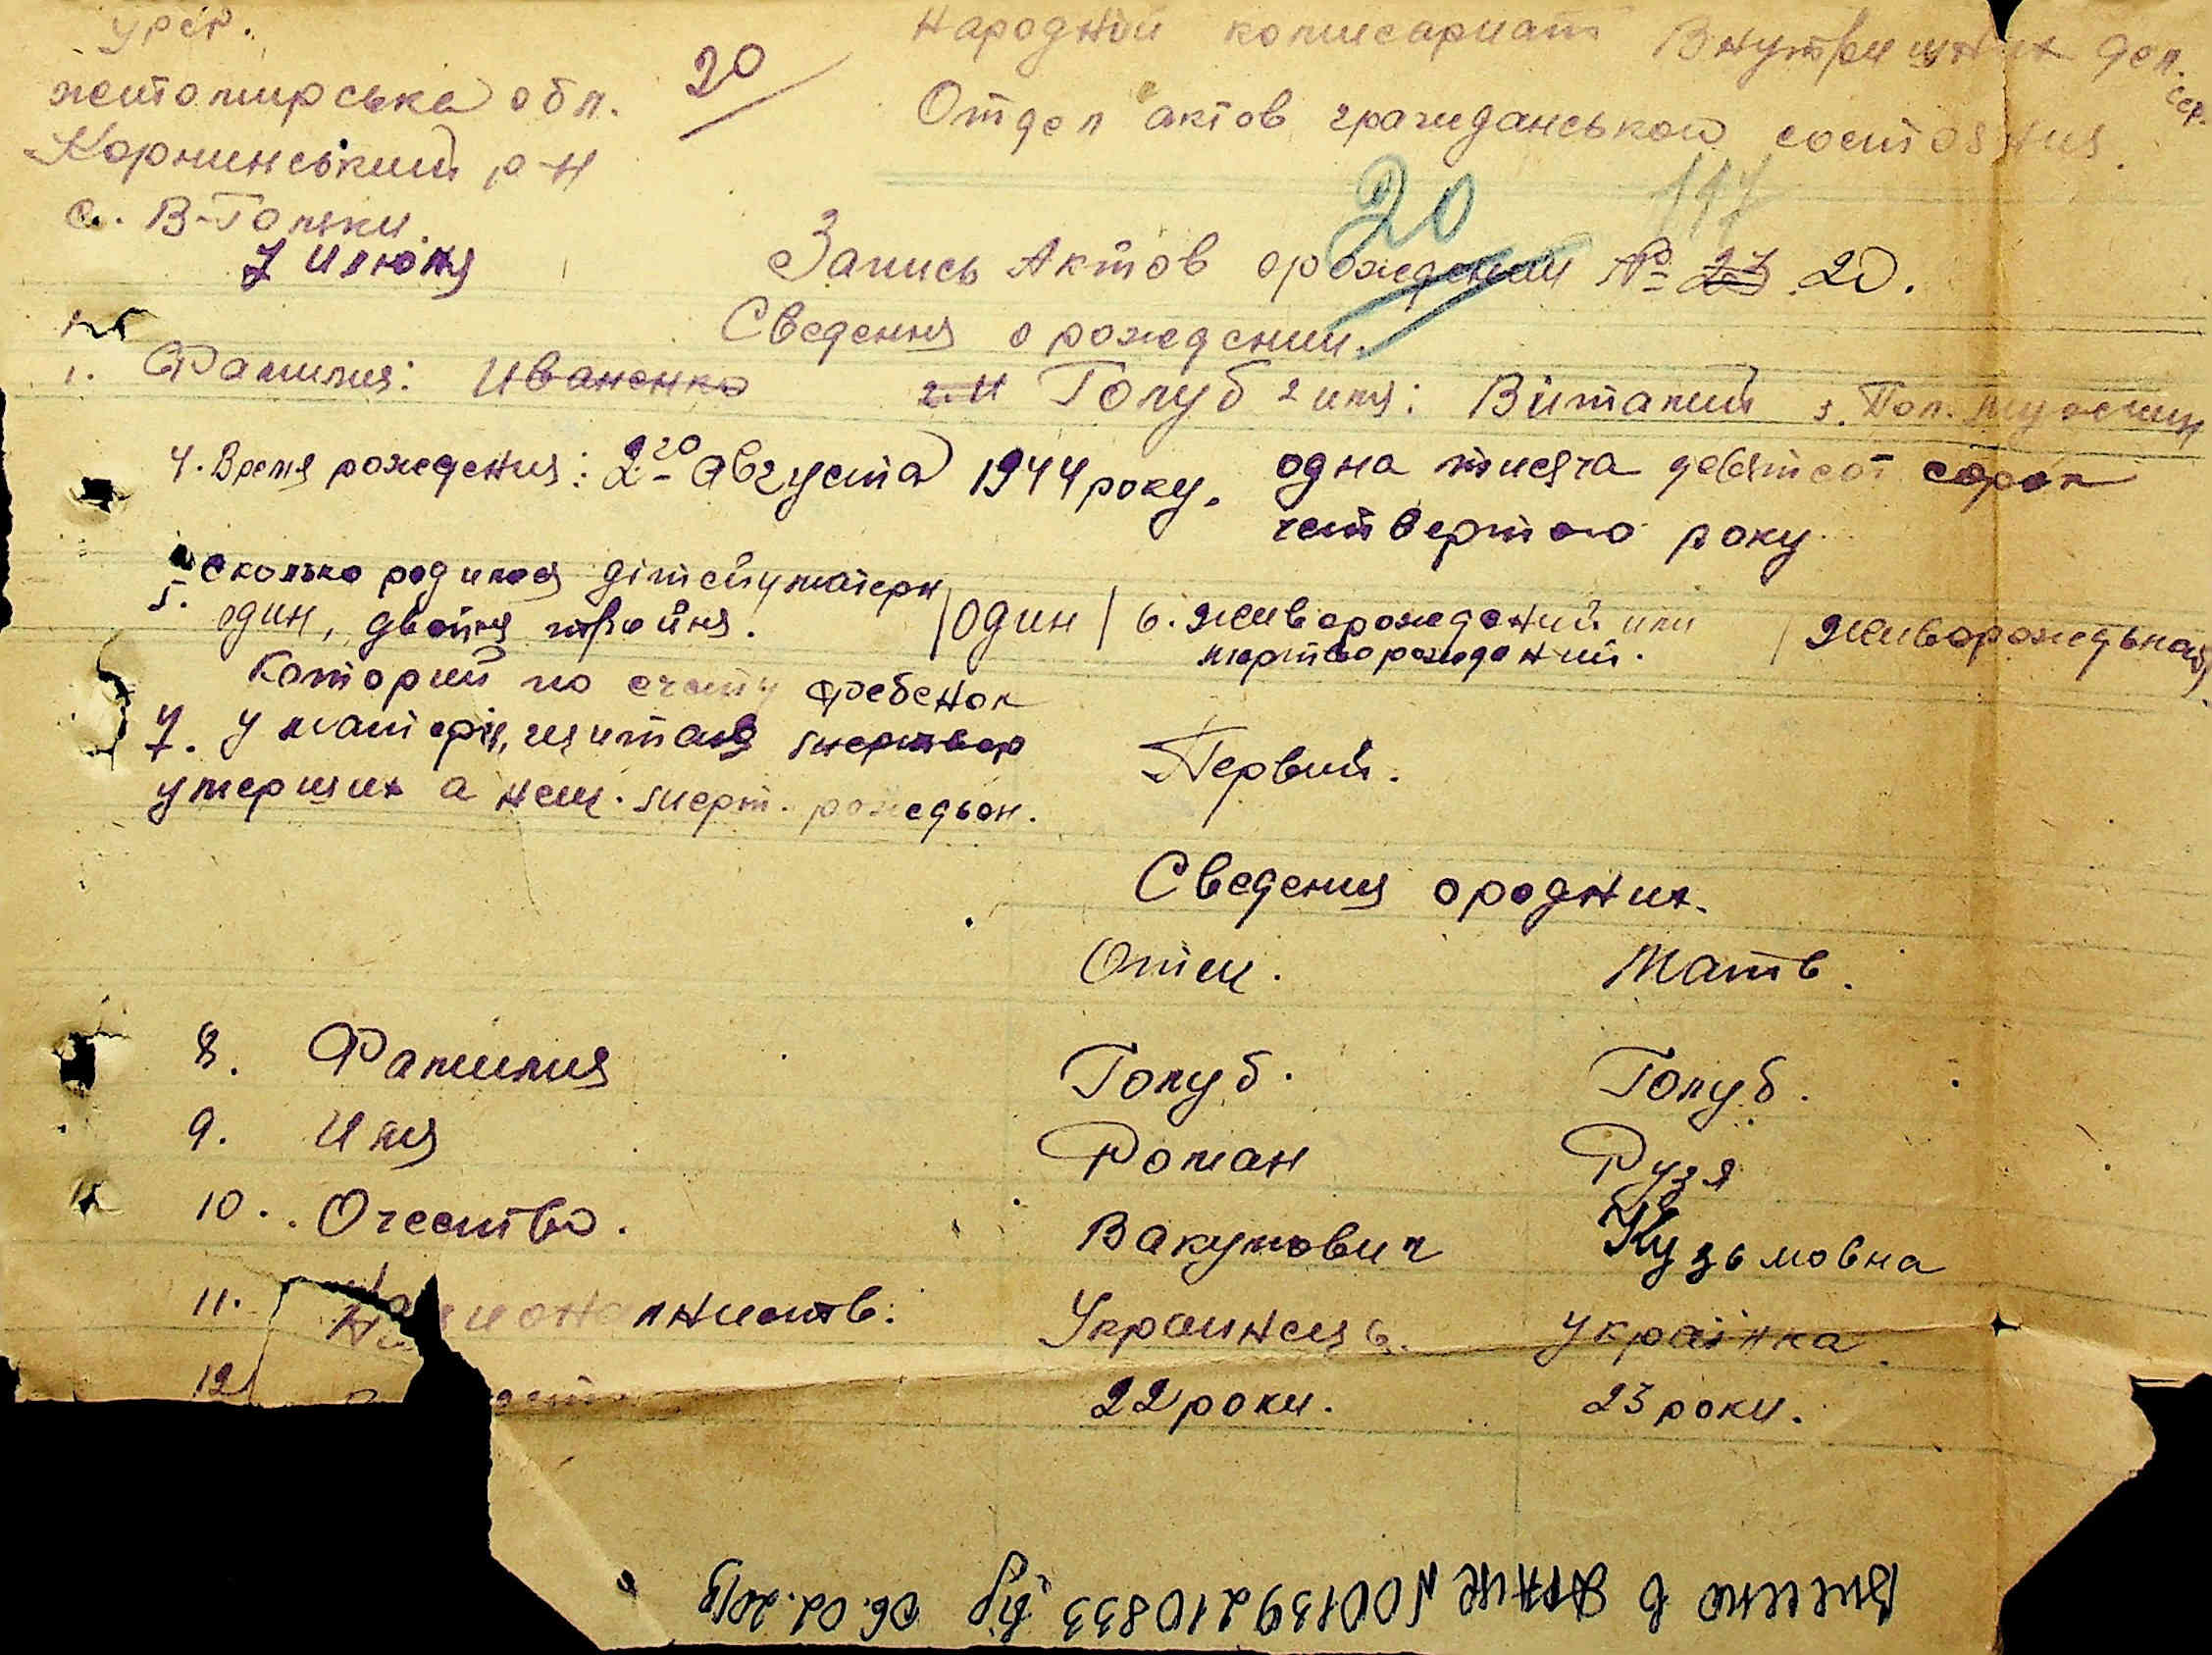 УРСР.
житомирська обл.
Корнинський р-н
с. В-Гольяки.
7 июля
20
Народний комисариат Внутришних дел.
ССР.
Отдел актов гражданськои состояния.
20
147
Запись Актов орождении № 27 20.
Сведения о рождении.
1. Фамилия: Иваненко 2. И Голуб 2 имя: Виталий 3. Пол. мужский
4. Время рождения: 2го Августа 1944 року. одна тисяча девятсот сорок
четвертого року
5. Сколько родилося дітей у матери
один, двойня тройня. |один| 6. живорожденый или
мертворожденый. | живорожденый
Которий по счоту ребенок
7. у матери, щитая мертвор
умерших а неи. мерт. рожедьон.
Первий.
Сведения ородних.
Отец. Мать.
8. Фамилия Голуб. Голуб.
9. Имя Роман Рузя
10. Очество. Вакумович Кузьмовна
11. Национальность: Украинець. українка.
12 22 роки. 23 роки.
Внесено в ДРАЦС N 00139210833 06.02.2019